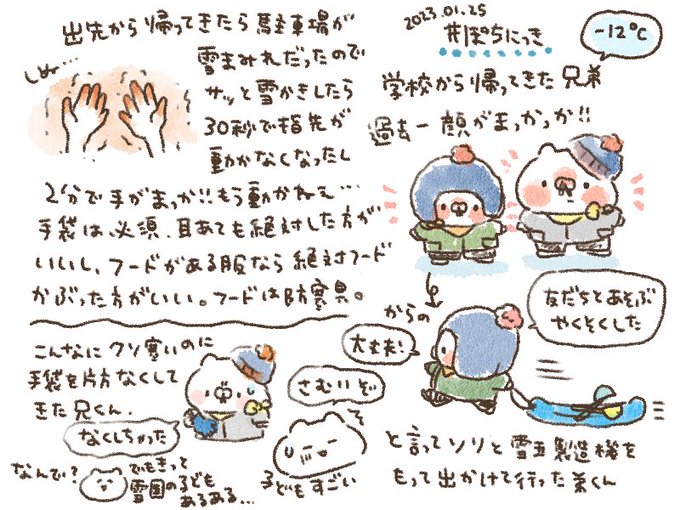 2023.01.25
#ぽちにっき
-12℃
学校から帰ってきた兄弟
過去一顔がまっかっか!!
からの
大丈夫!
友だちとあそぶ
やくそくした
と言ってソリと雪玉製造機を
もって出かけて行った弟くん
出先から帰ってきたら駐車場が
雪まみれだったので
サッと雪かきしたら
30秒で指先が
動かなくなったし
しぬ…
2分で手がまっか!!もう動かねぇ…
手袋は必須、耳あても絶対した方が
いいし、フードがある服なら絶対フード
かぶった方がいい。フードは防寒具。
こんなにクソ寒いのに
手袋を片方なくして
きた兄くん。
なくしちゃった
なんで?
でもきっと
雪国の子ども
あるある…
さむいぞ
子どもすごい